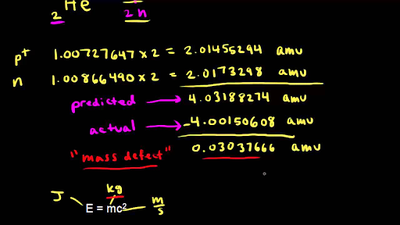 2 He 2 n
p+ 1.00727647 x 2 = 2.01455294 amu
n 1.00866490 x 2 = 2.0173298 amu
predicted → 4.03188274 amu
actual → -4.00150608 amu
"mass defect" 0.03037666 amu
J kg
E = mc² m/s